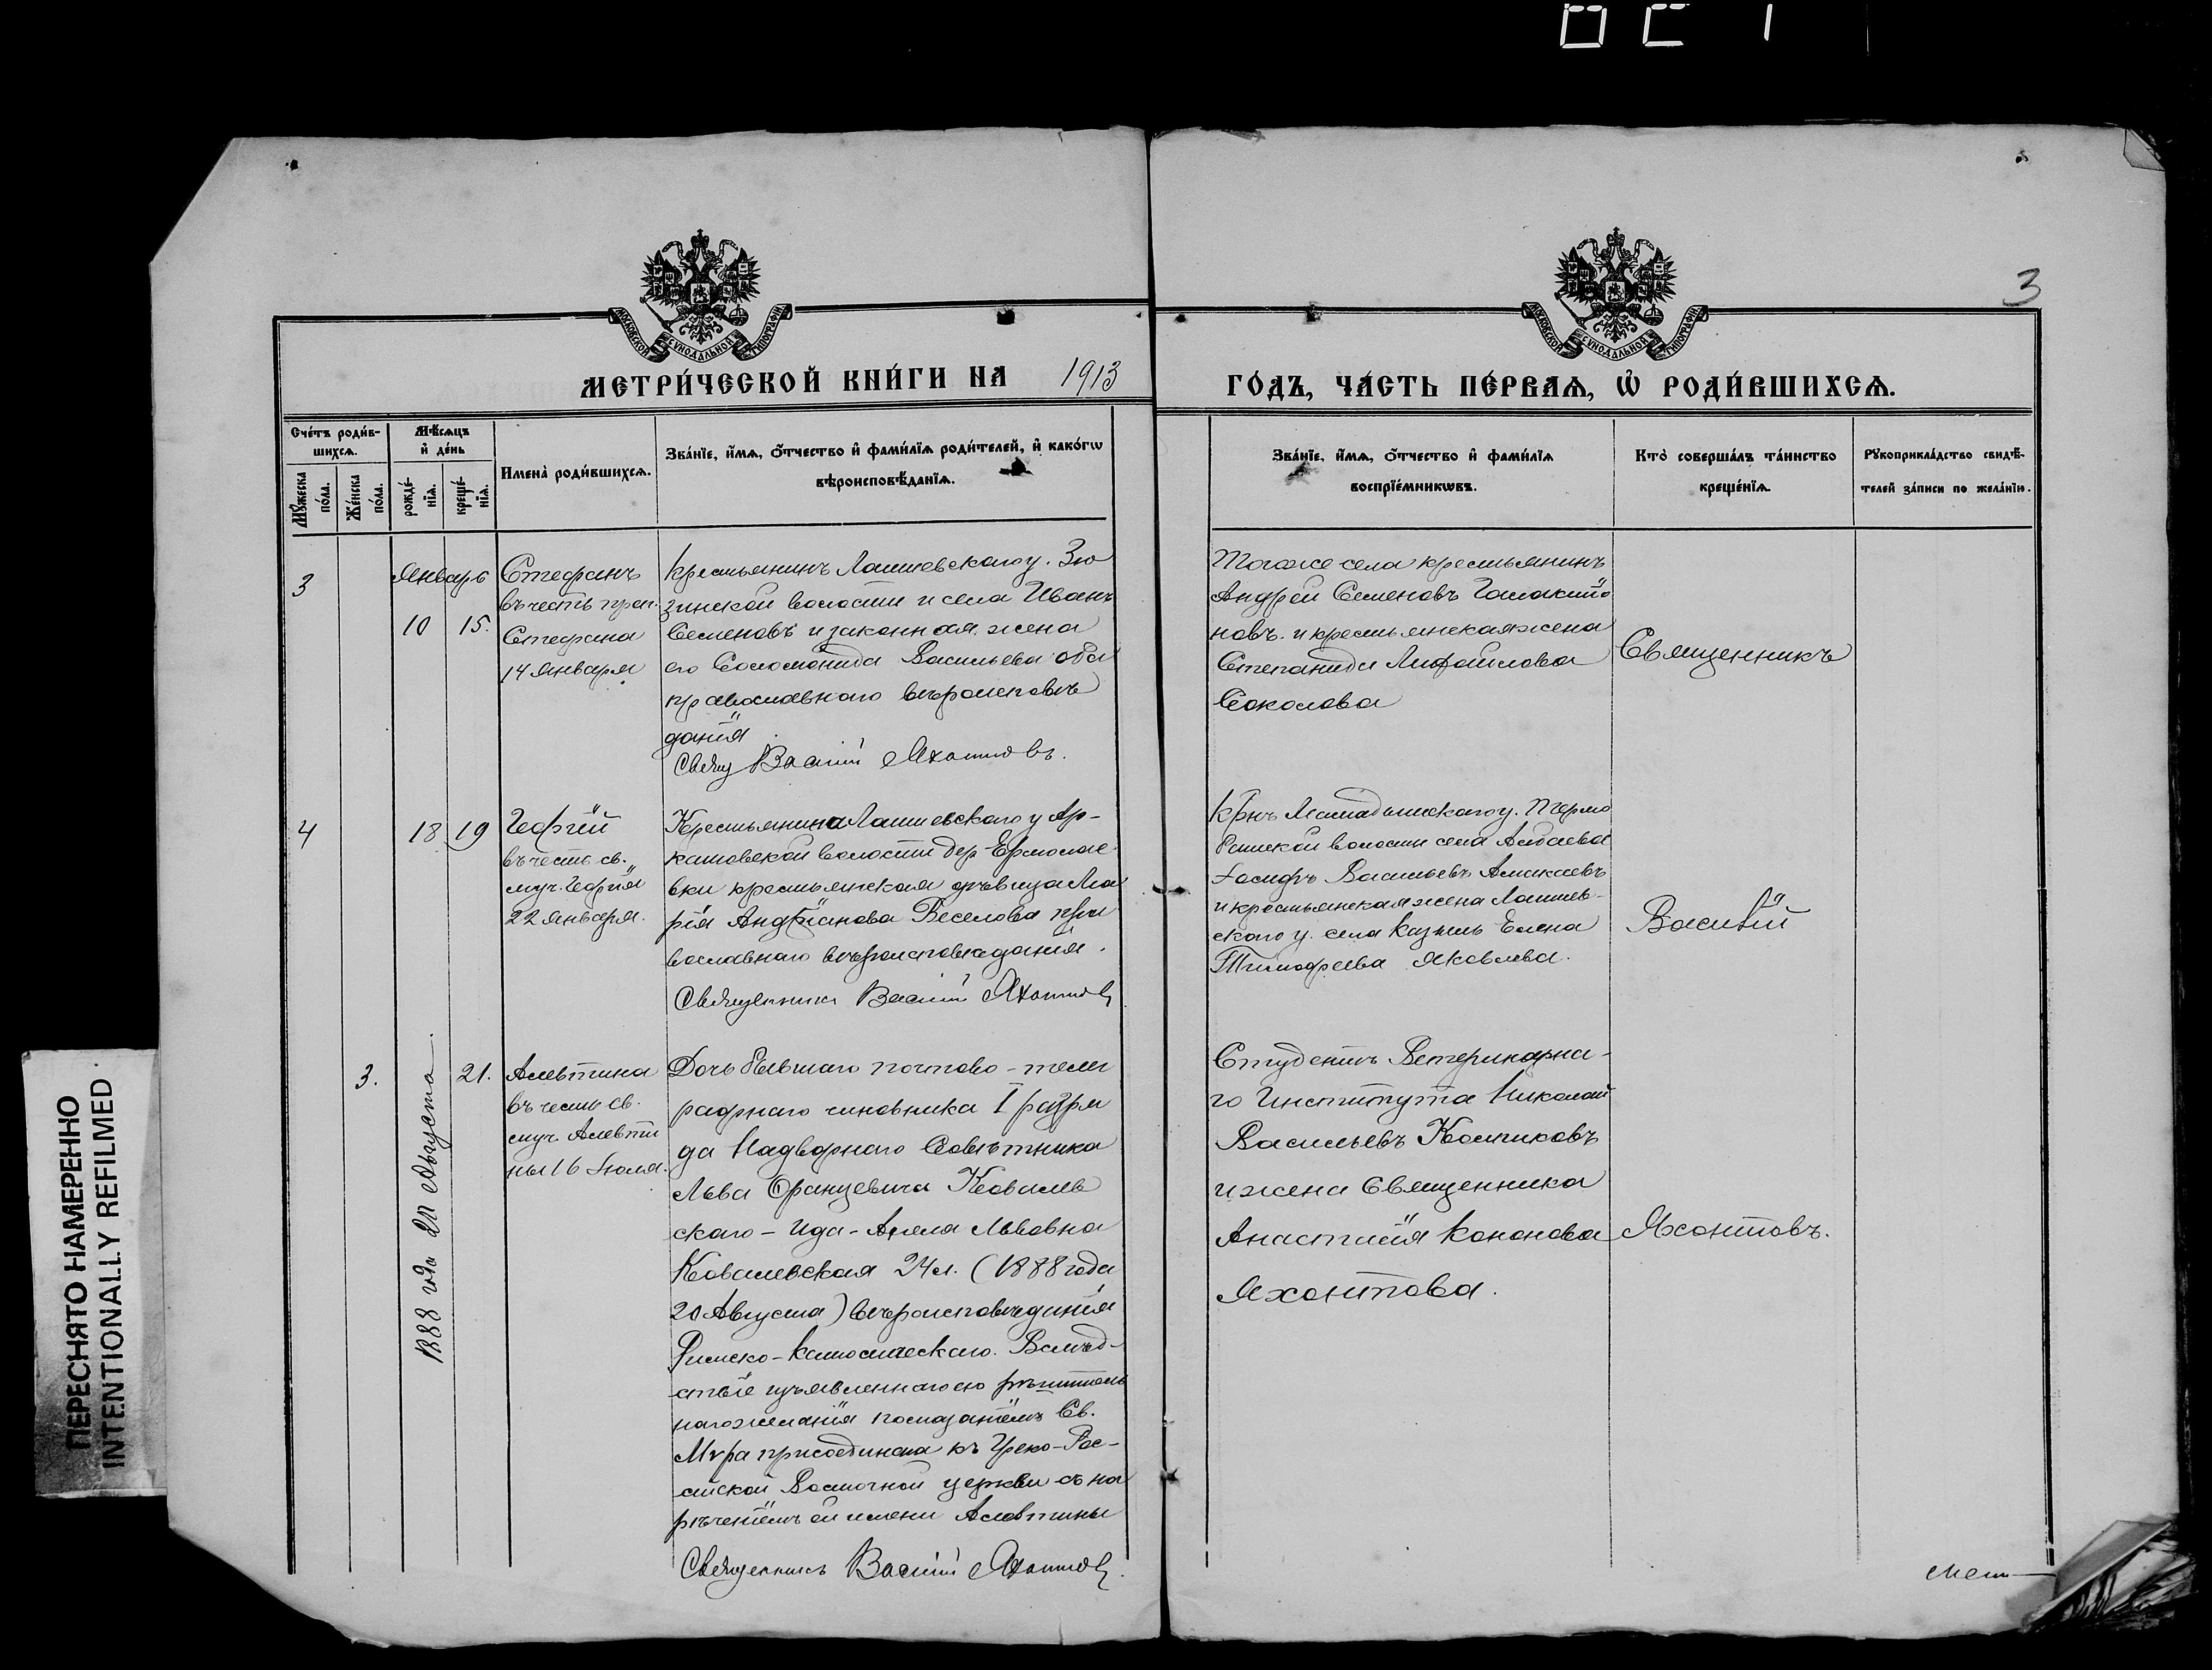 ПЕРЕСНЯТО НАМЕРЕННО
INTENTIONALLY REFILMED
3
МОСКОВСКОЙ СѴНОДАЛЬНОЙ ТИПОГРАФІИ
МОСКОВСКОЙ СѴНОДАЛЬНОЙ ТИПОГРАФІИ
МЕТРИ́ЧЕСКОЙ КНИ́ГИ НА 1913
ГО́ДЪ, ЧА́СТЬ ПЕ́РВАѦ, Ѡ҆ РОДИ́ВШИХСѦ.
Сче́тъ роди́в-
шихсѧ.
Мꙋ́жеска
по́ла.
Же́нска
по́ла.
Мѣ́сѧцъ
и҆ де́нь
рожде́-
нїѧ.
креще́-
нїѧ.
Имена̀ роди́вшихсѧ.
Зва́нїе, и҆́мѧ, ѻ҆́тчество и҆ фами́лїѧ роди́телей, и҆ како́гѡ
вѣроисповѣ́данїѧ.
Зва́нїе, и҆́мѧ, ѻ҆́тчество и҆ фами́лїѧ
воспрїе́мникѡвъ.
Кто̀ соверша́лъ та́инство
креще́нїѧ.
Рꙋкоприкла́дство свидѣ́-
телей за́писи по жела́нїю.
3
Январь
10 15.
Стефанъ
въ честь прп.
Стефана
14 Января
Крестьянинъ Лаишевскаго у. Зю
зинской волости и села Иванъ
Семеновъ и законная жена
его Соломонида Васильева оба
православнаго вѣроисповѣ
данія
Свящ Василій Яхонтовъ.
Тогоже села крестьянинъ
Андрей Семеновъ
новъ. и крестьянская жена
Степанида
Соколова
Священникъ
4
18 19
Георгій
въ честь св.
муч. Георгія
22 Января.
Крестьянина Лаишевскаго у Ар-
волости дер. Ермолае
вки крестьянская дѣвица Ма
рія Андріанова Веселова пра
вославнаго вѣроисповѣданія.
Священникъ Василій Яхонтовъ
Крнъ Мамадышскаго у.
волости села
Іосифъ Васильевъ
и крестьянская жена Лаишев-
скаго у. села Казыль Елена
Тимофеева Яковлева.
Василій
3.
1888 года 20 Августа.
21.
Алевтина
въ честь св.
муч. Алевти
ны 16 Іюля.
Дочь бывшаго почтово-телег
рафнаго чиновника I разря
да Надворнаго Совѣтника
Льва Францевича Ковалев
скаго - Ида-Анеля Львовна
Ковалевская 24 л. (1888 года
20 Августа) вѣроисповѣданія
Римско-Католическаго. Вслѣд-
ствіе изъявленнаго ею рѣшитель
наго желанія помазаніемъ Св.
Мѵра присоединена къ Греко-Рос-
сійской Восточной церкви съ на
рѣченіемъ ей имени Алевтины
Священникъ Василій Яхонтовъ.
Студентъ Ветеринарна-
го Института Николай
Васильевъ
и жена Священника
Анастасія Кононова
Яхонтова.
Яхонтовъ.